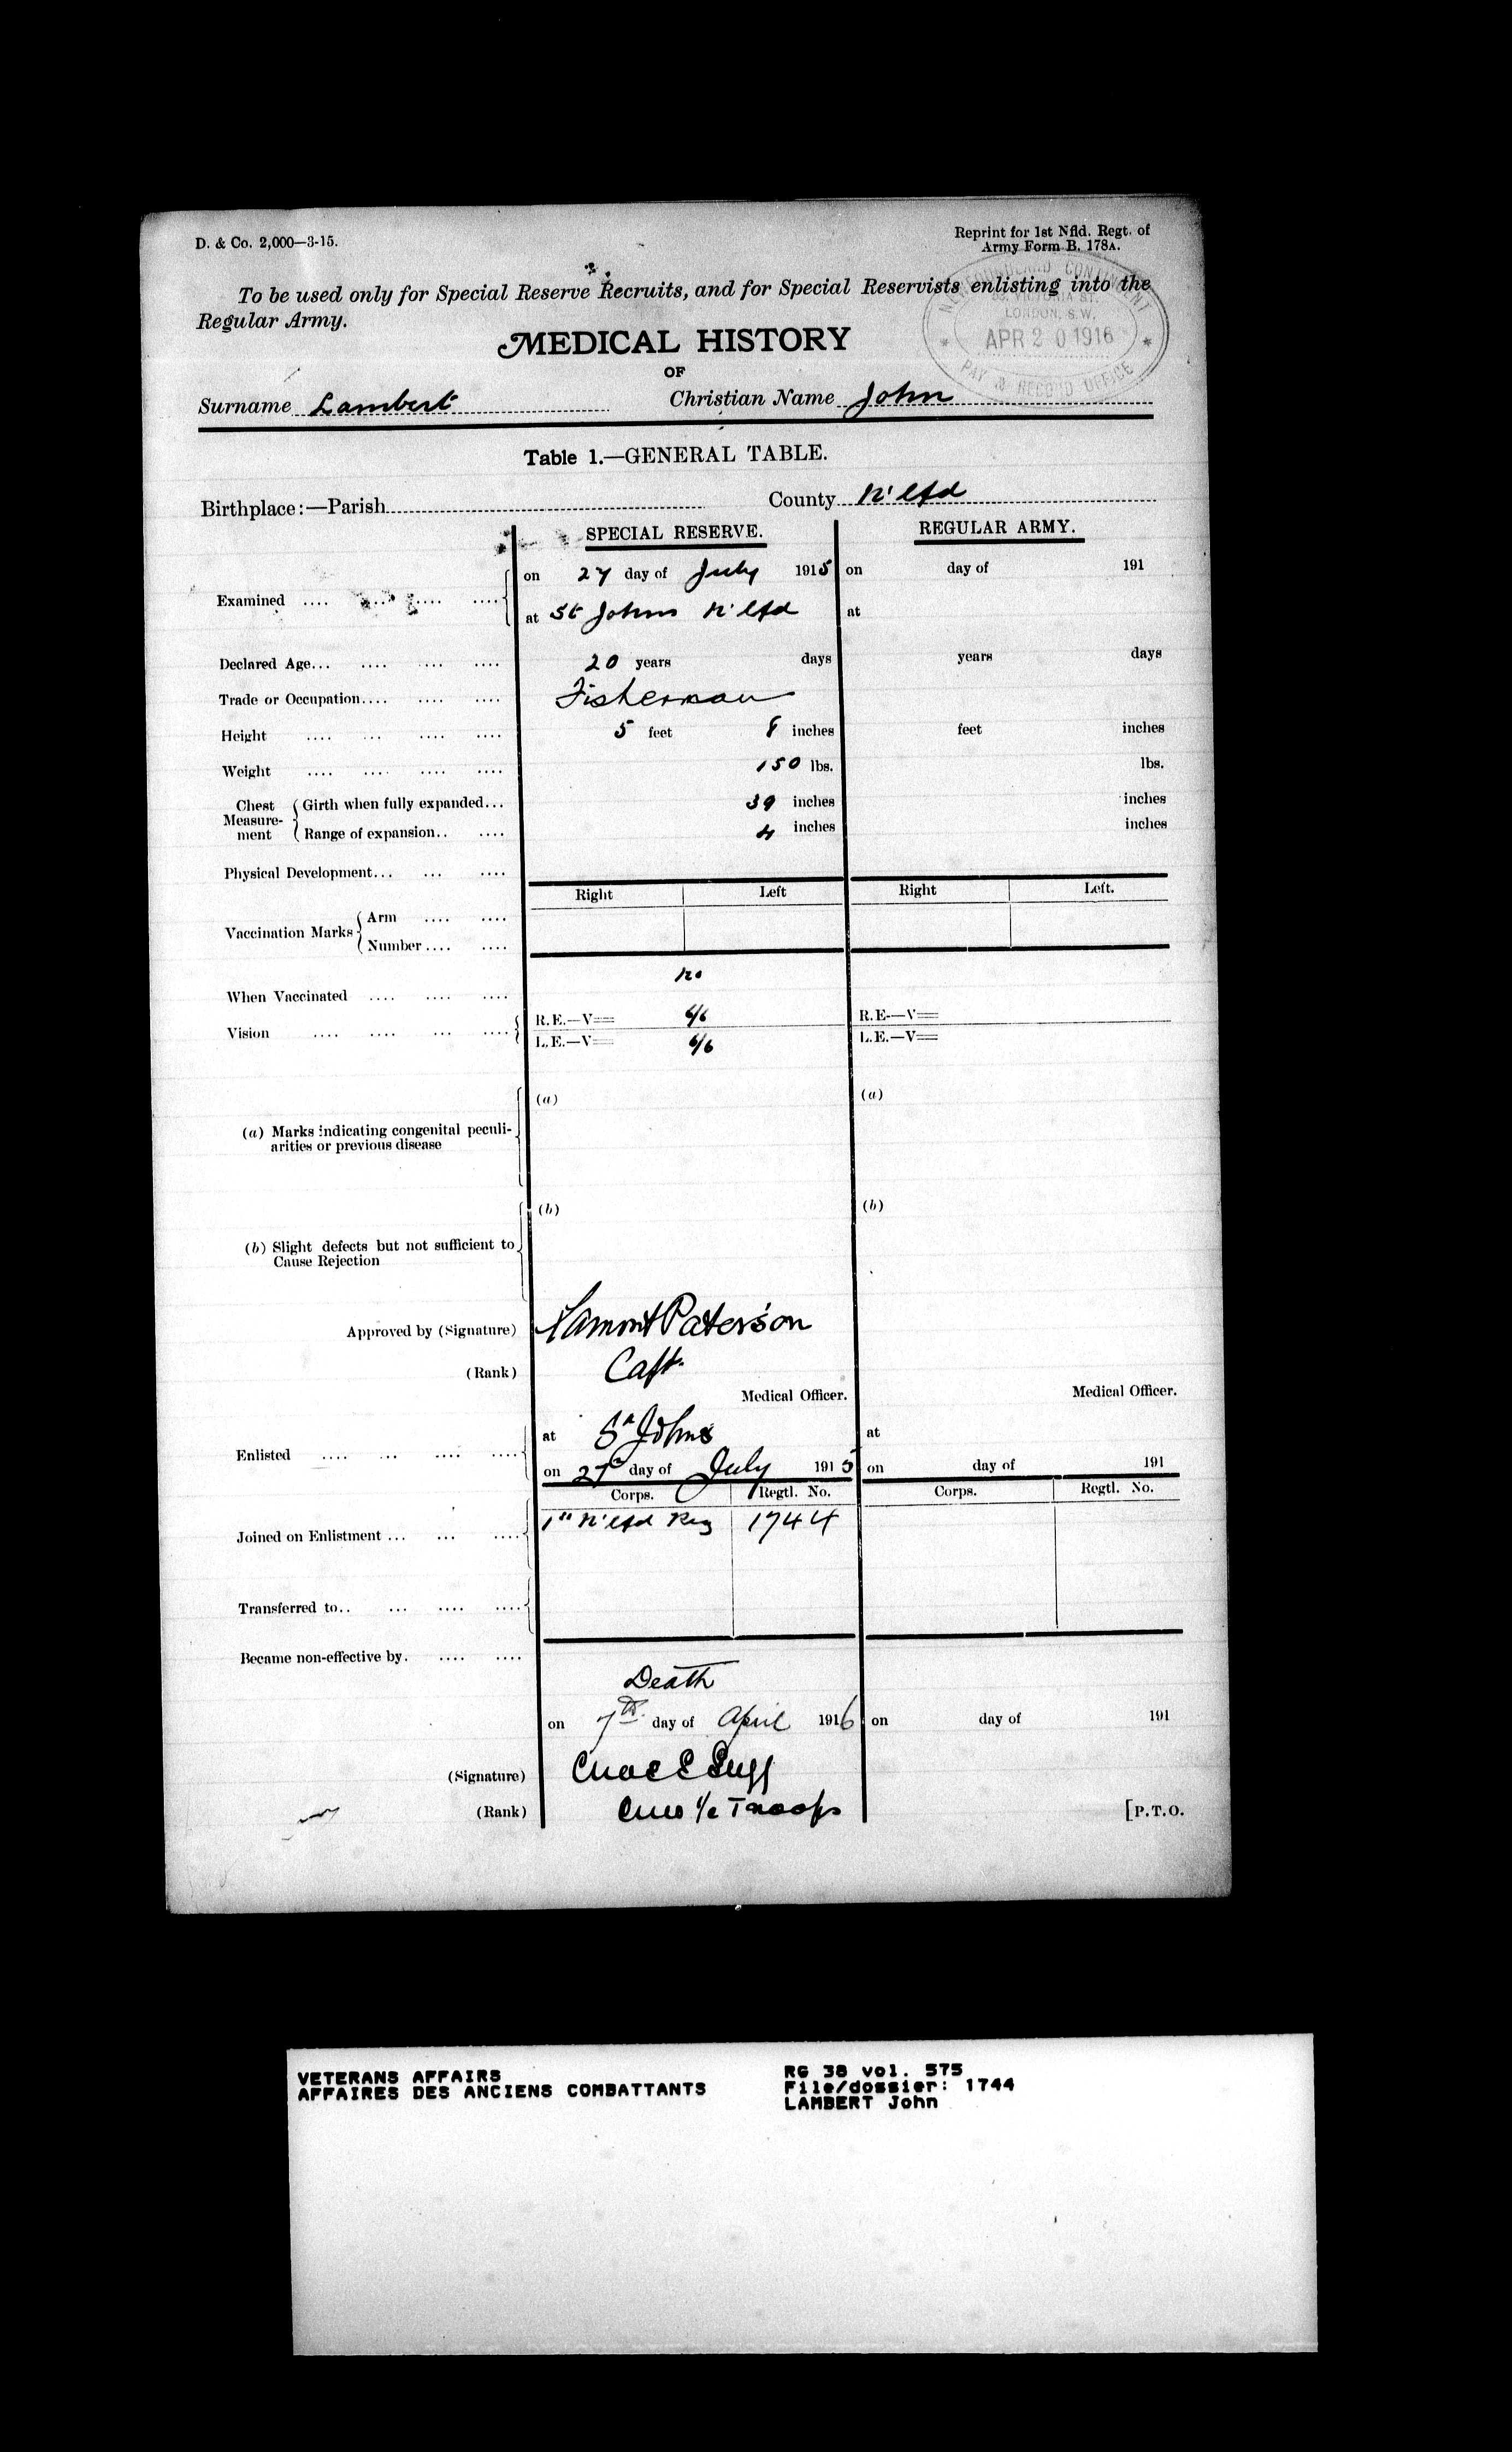 D. & Co. 2,000—3-15.
Reprint for 1st Nfld. Regt. of
Army Form B. 178A.
To be used only for Special Reserve Recruits, and for Special Reservists enlisting into the
Regular Army.
NEWFOUNDLAND CONTINGENT
VICTORIA ST.
LONDON, S.W.
APR 20 1916
PAY & RECORD OFFICE
MEDICAL HISTORY
OF
Surname Lambert Christian Name John
Table 1.—GENERAL TABLE.
Birthplace:—Parish County N'fld
SPECIAL RESERVE. REGULAR ARMY.
Examined .... .... .... ....
on 27 day of July 1915 on day of 191
at St Johns N'fld at
Declared Age... .... .... .... 20 years days years days
Trade or Occupation.... .... .... Fisherman
Height .... ... .... .... 5 feet 8 inches feet inches
Weight .... .... .... .... 150 lbs. lbs.
Chest Measurement Girth when fully expanded... 39 inches inches
Range of expansion.. .... 4 inches inches
Physical Development... ... ....
Right Left Right Left.
Vaccination Marks Arm .... ....
Number .... ....
When Vaccinated .... .... .... no
Vision .... .... ... .... R.E.—V= 6/6 R.E—V=
L.E.—V= 6/6 L.E.—V=
(a) Marks indicating congenital peculi-
arities or previous disease
(a) (a)
(b) Slight defects but not sufficient to
Cause Rejection
(b) (b)
Approved by (Signature) Lamont Paterson
(Rank) Capt.
Medical Officer. Medical Officer.
Enlisted .... ... .... ....
at St Johns at
on 27 day of July 1915 on day of 191
Corps. Regtl. No. Corps. Regtl. No.
Joined on Enlistment ... ... .... 1st N'fld Reg 1744
Transferred to.. ... .... ....
Became non-effective by. .... ....
Death
on 7th day of April 1916 on day of 191
(Signature)
(Rank) i/c Troops
[P.T.O.
VETERANS AFFAIRS
AFFAIRES DES ANCIENS COMBATTANTS
RG 38 vol. 575
File/dossier: 1744
LAMBERT John